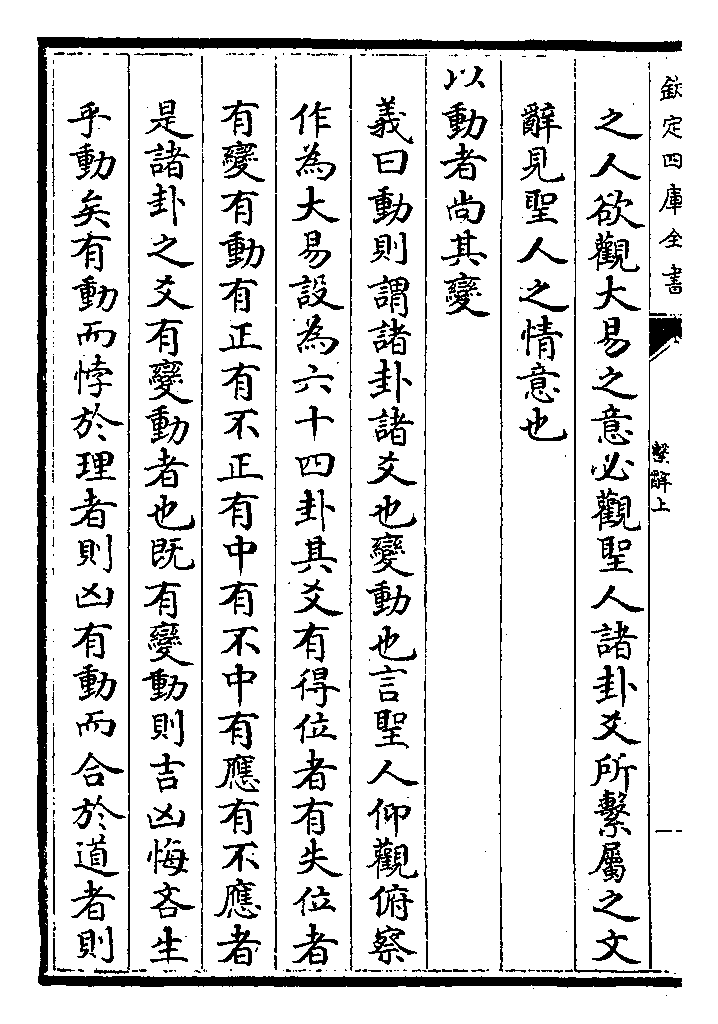 欽定四庫全書
繫辭上
之人欲觀大易之意必觀聖人諸卦爻所繫屬之文
辭見聖人之情意也
以動者尚其變
義曰動則謂諸卦諸爻也變動也言聖人仰觀俯察
作為大易設為六十四卦其爻有得位者有失位者
有變有動有正有不正有中有不中有應有不應者
是諸卦之爻有變動者也既有變動則吉凶悔吝生
乎動矣有動而悖於理者則凶有動而合於道者則